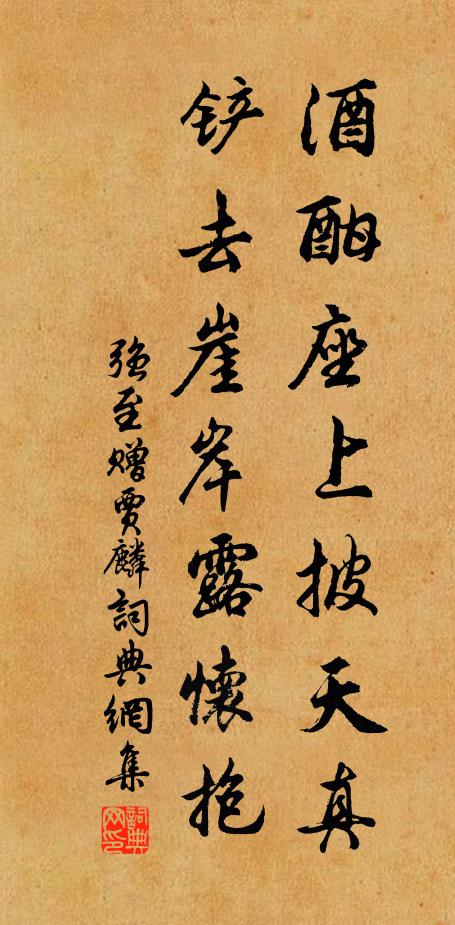 酒酣座上披天真
铲去崖岸露懷抱
强至赠贾麟詞典網集
詞典网印